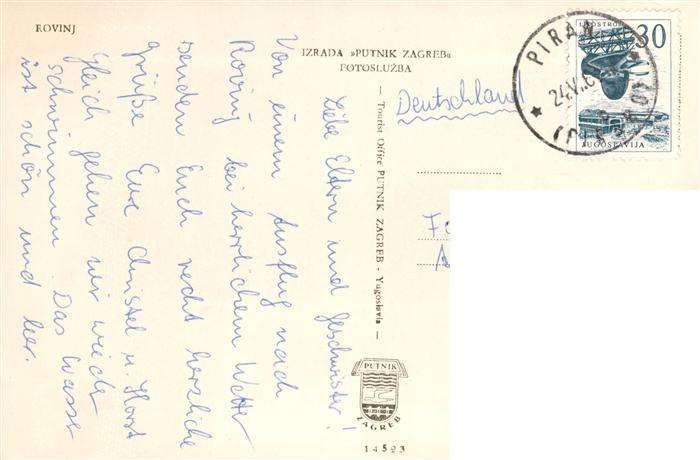 ROVINJ
IZRADA »PUTNIK ZAGREB«
FOTOSLUŽBA
Liebe Eltern und Geschwister!
Von einem Ausflug nach
Rovinj bei herrlichem Wetter
senden Euch recht herzliche
grüße Eure Christel u. Horst
Gleich gehen wir wieder
schwimmen. Das Wasser
ist schön und
— Tourist Office PUTNIK ZAGREB - Yugoslavia —
PUTNIK
ZAGREB
14593
Deutschland
PIRAN
24.V.6
30
JUGOSLAVIJA